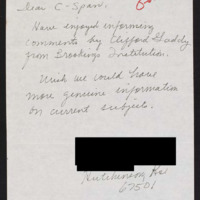 Dear C-Span.
Have enjoyed informing
comments by Clifford Gaddy
from Brookings Institution.
Wish we could have
more genuine information
on current subjects.
Hutchinson, Ks
67501